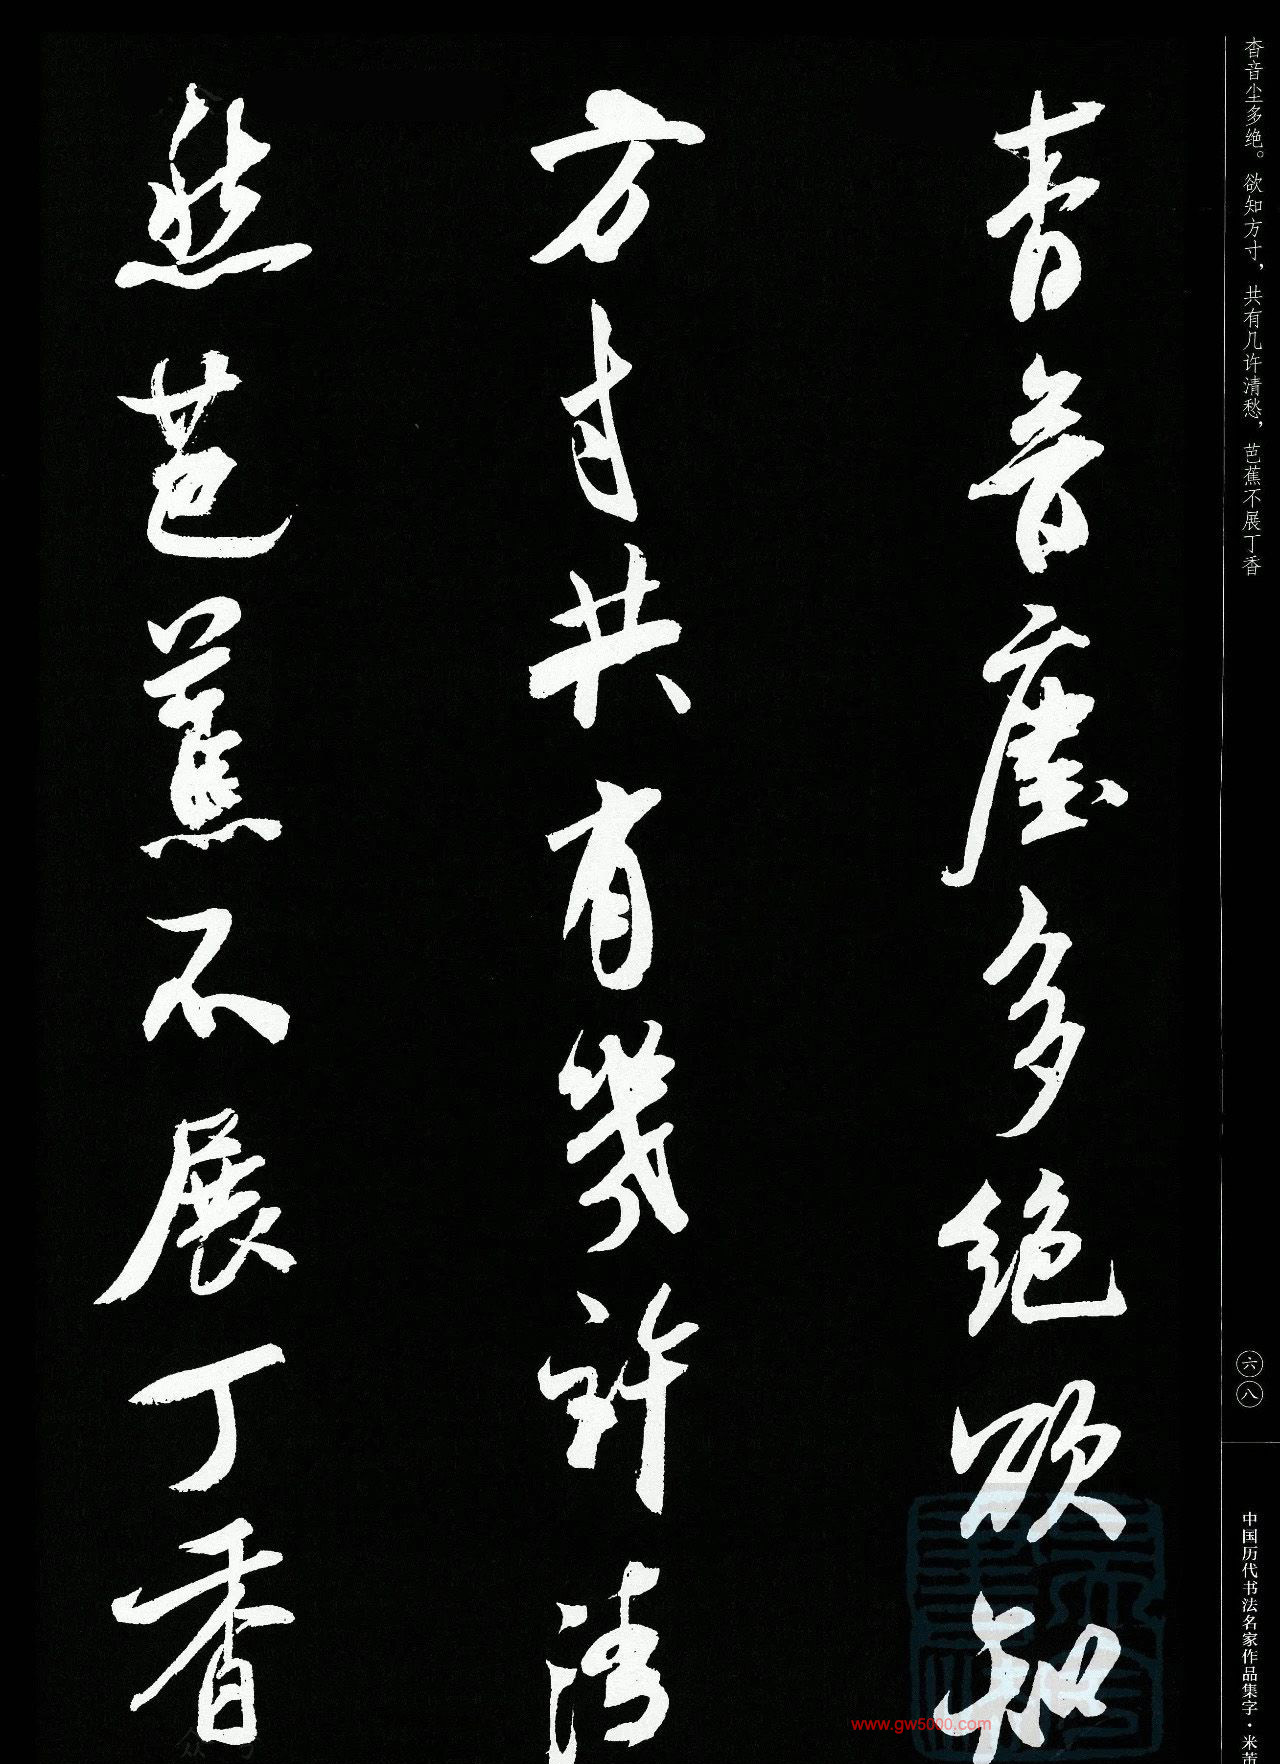 杳音尘多绝。欲知方寸，共有几许清愁，芭蕉不展丁香
六八
中国历代书法名家作品集字·米芾
杳音塵多絕欲知
方寸共有幾許清
愁芭蕉不展丁香
www.gw5000.com